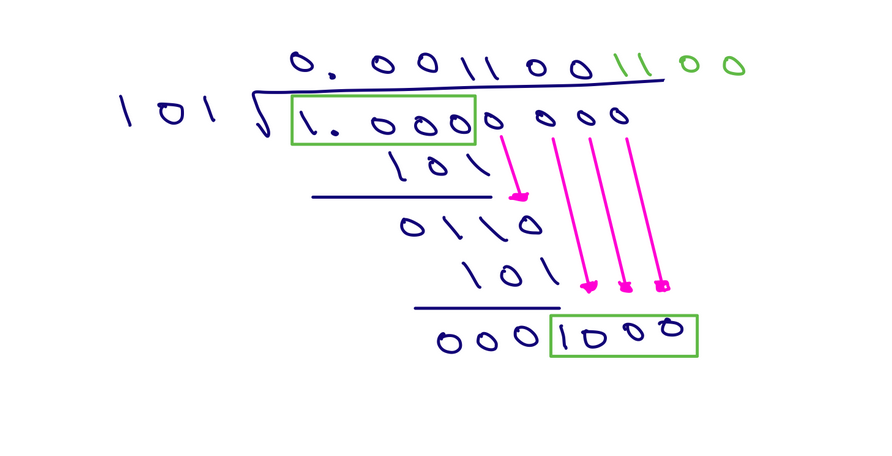 0.0011001100
101 √1.0000000
101
0110
101
0001000